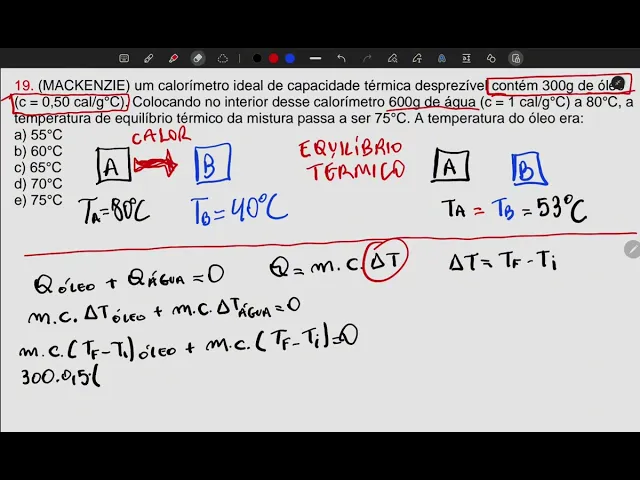 19. (MACKENZIE) um calorímetro ideal de capacidade térmica desprezível contém 300g de óleo
(c = 0,50 cal/g°C). Colocando no interior desse calorímetro 600g de água (c = 1 cal/g°C) a 80°C, a
temperatura de equilíbrio térmico da mistura passa a ser 75°C. A temperatura do óleo era:
a) 55°C
b) 60°C
c) 65°C
d) 70°C
e) 75°C
CALOR
A B
TA=80°C TB=40°C
EQUILÍBRIO
TÉRMICO
A B
TA = TB = 53°C
Q ÓLEO + Q ÁGUA = 0 Q = m.c.ΔT ΔT = TF - Ti
m.c.ΔT ÓLEO + m.c.ΔT ÁGUA = 0
m.c.(TF-Ti) ÓLEO + m.c.(TF-Ti)=0
300.0,5.(